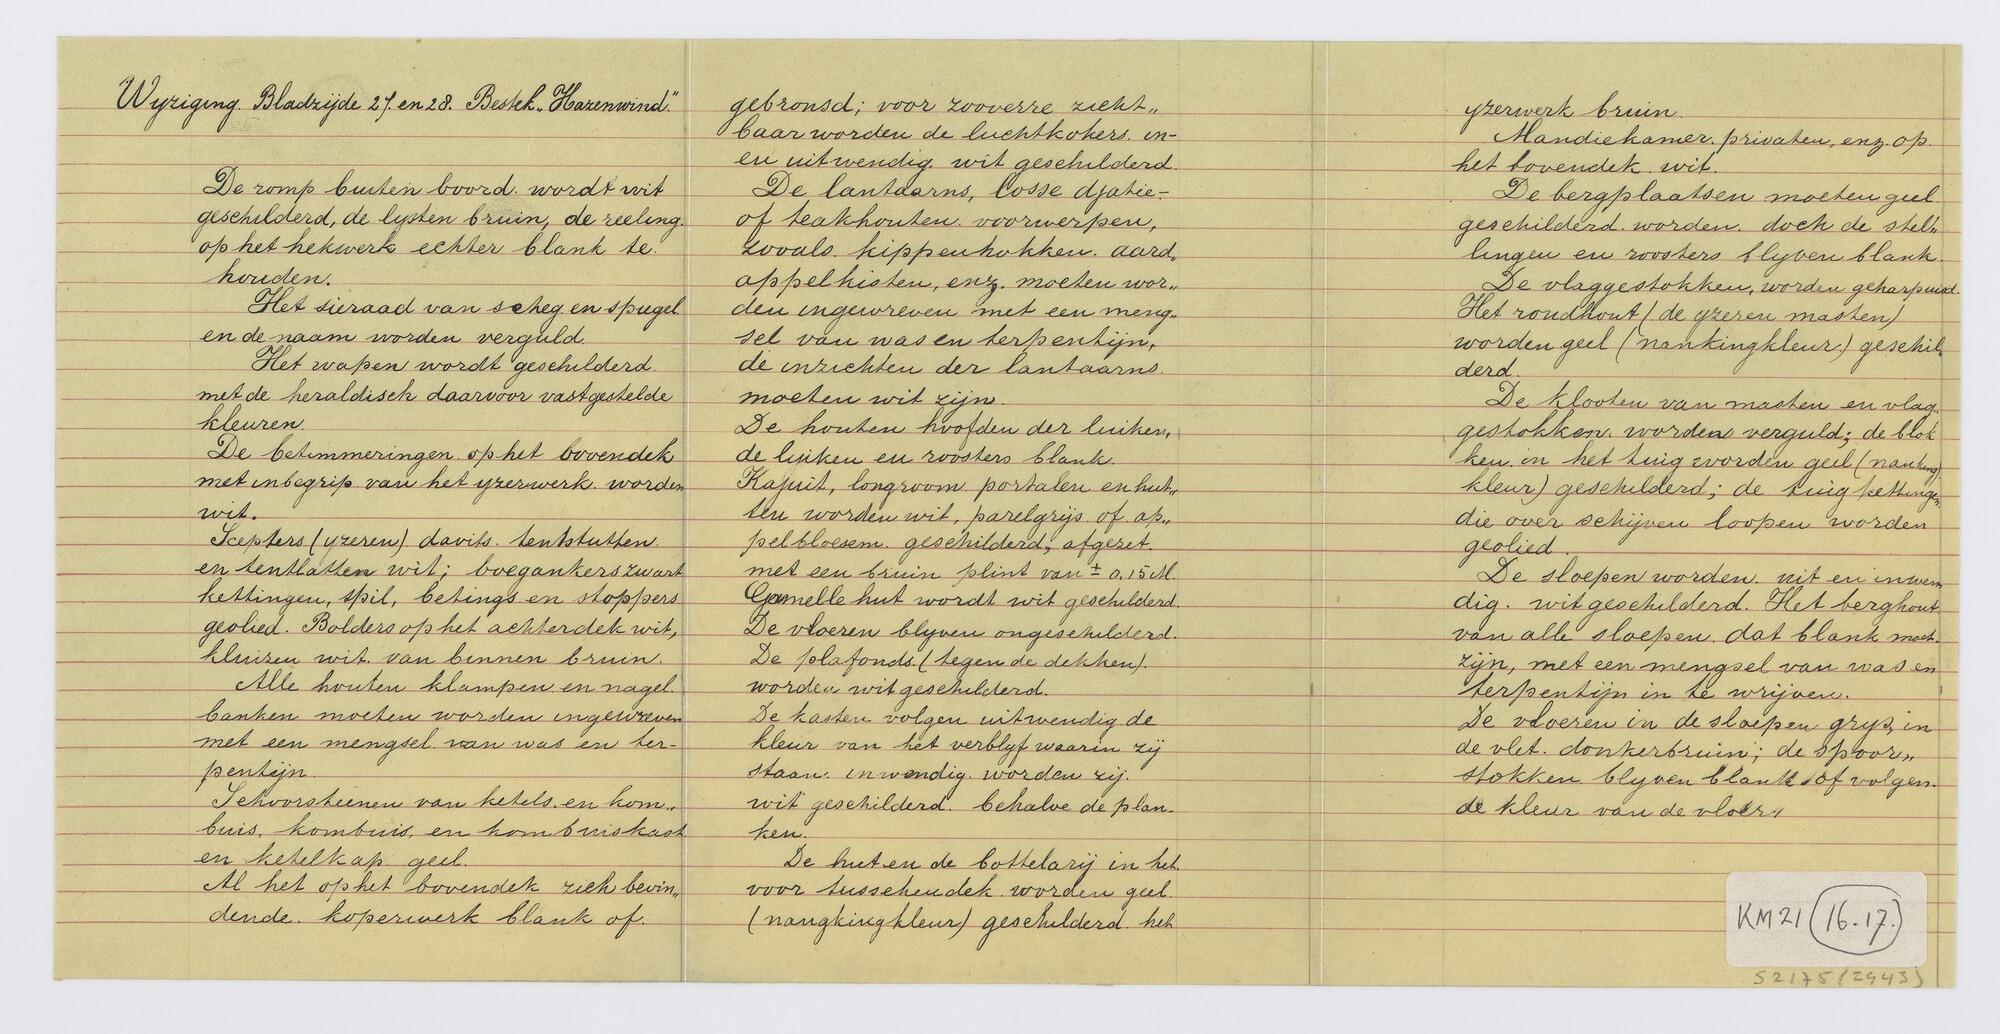 Wyziging. Bladzijde 27. en 28. Bestek „Hazenwind"
De romp buiten boord. wordt wit
geschilderd, de lysten bruin, de reeling.
op het hekwerk echter blank te.
houden.
Het sieraad van scheg en spiegel
en de naam worden verguld.
Het wapen wordt geschilderd.
met de heraldisch daarvoor vastgestelde
kleuren.
De betimmeringen op het bovendek
met inbegrip van het yzerwerk. worden
wit.
Scepters (yzeren) davits. tentstutten.
en tentlatten wit; boegankers zwart
kettingen, spil, betings en stoppers
geolied. Bolders op het achterdek wit,
kluizen wit. van binnen bruin.
Alle houten klampen en nagel.
banken moeten worden ingewreven
met een mengsel van was en ter-
pentijn.
Schoorsteenen van ketels. en kom„
buis, kombuis, en kombuiskast
en ketelkap geel.
Al het op het bovendek zich bevin„
dende. koperwerk blank of.
gebronsd; voor zooverre zicht„
baar worden de luchtkokers. in-
en uitwendig. wit geschilderd.
De lantaarns, losse djatie-
of teakhouten. voorwerpen,
zooals. kippenhokken. aard„
appelkisten, enz. moeten wor„
den ingewreven met een meng„
sel van was en terpentijn,
de inzichten der lantaarns.
moeten wit zijn.
De houten hoofden der luiken,
de luiken en roosters blank.
Kajuit, longroom portalen en hut„
ten worden wit, parelgrijs of ap„
pelbloesem. geschilderd, afgezet.
met een bruin plint van ± 0.15 M.
Gamelle hut wordt wit geschilderd.
De vloeren blyven ongeschilderd.
De plafonds. (tegen de dekken).
worden wit geschilderd.
De kasten volgen uitwendig de
kleur van het verblyf waarin zij
staan. inwendig. worden zij.
wit geschilderd. behalve de plan-
ken.
De hut en de bottelarij in het.
voor tusschendek. worden geel.
(nangkingkleur) geschilderd. het
yzerwerk bruin.
Mandiekamer. privaten, enz. op.
het bovendek. wit.
De bergplaatsen moeten geel
geschilderd. worden. doch de stel„
lingen en roosters blyven blank.
De vlaggestokken, worden geharpuisd.
Het rondhout (de yzeren masten)
worden geel (nankingkleur.) geschil„
derd.
De klooten van masten en vlag.
gestokken. worden verguld; de blok
ken. in het tuig worden geel (nanking)
kleur) geschilderd; de tuig kettingen
die over schijven loopen worden
geolied.
De sloepen worden. uit en inwen
dig. wit geschilderd. Het berghout
van alle sloepen. dat blank moet.
zijn, met een mengsel van was en
terpentijn in te wrijven.
De vloeren in de sloepen grys, in
de vlet. donkerbruin; de spoor„
stokken blyven blank of volgen.
de kleur van de vloer.
KM 21 (16.17.)
S2175(2943)